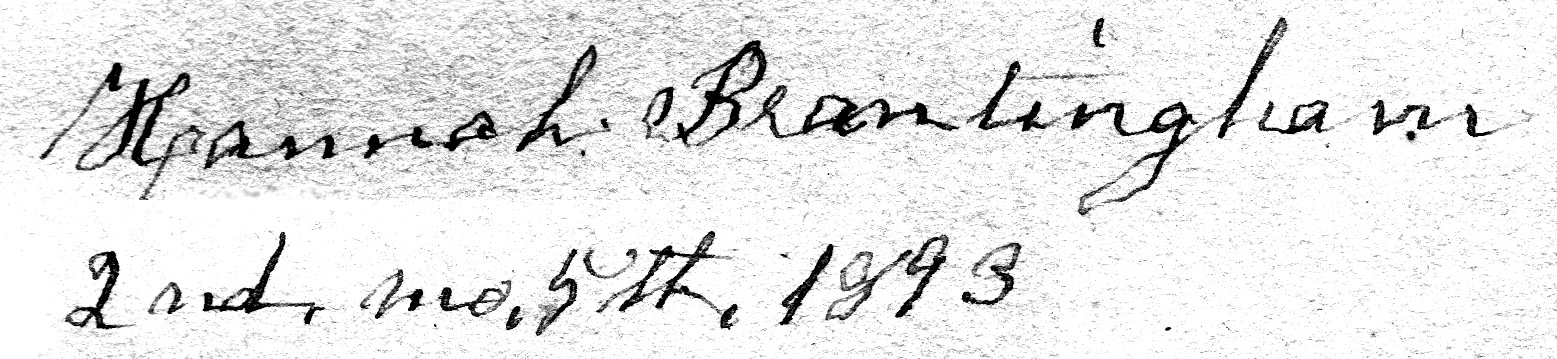 Hannah. Brantingham
2nd. mo. 5th, 1893